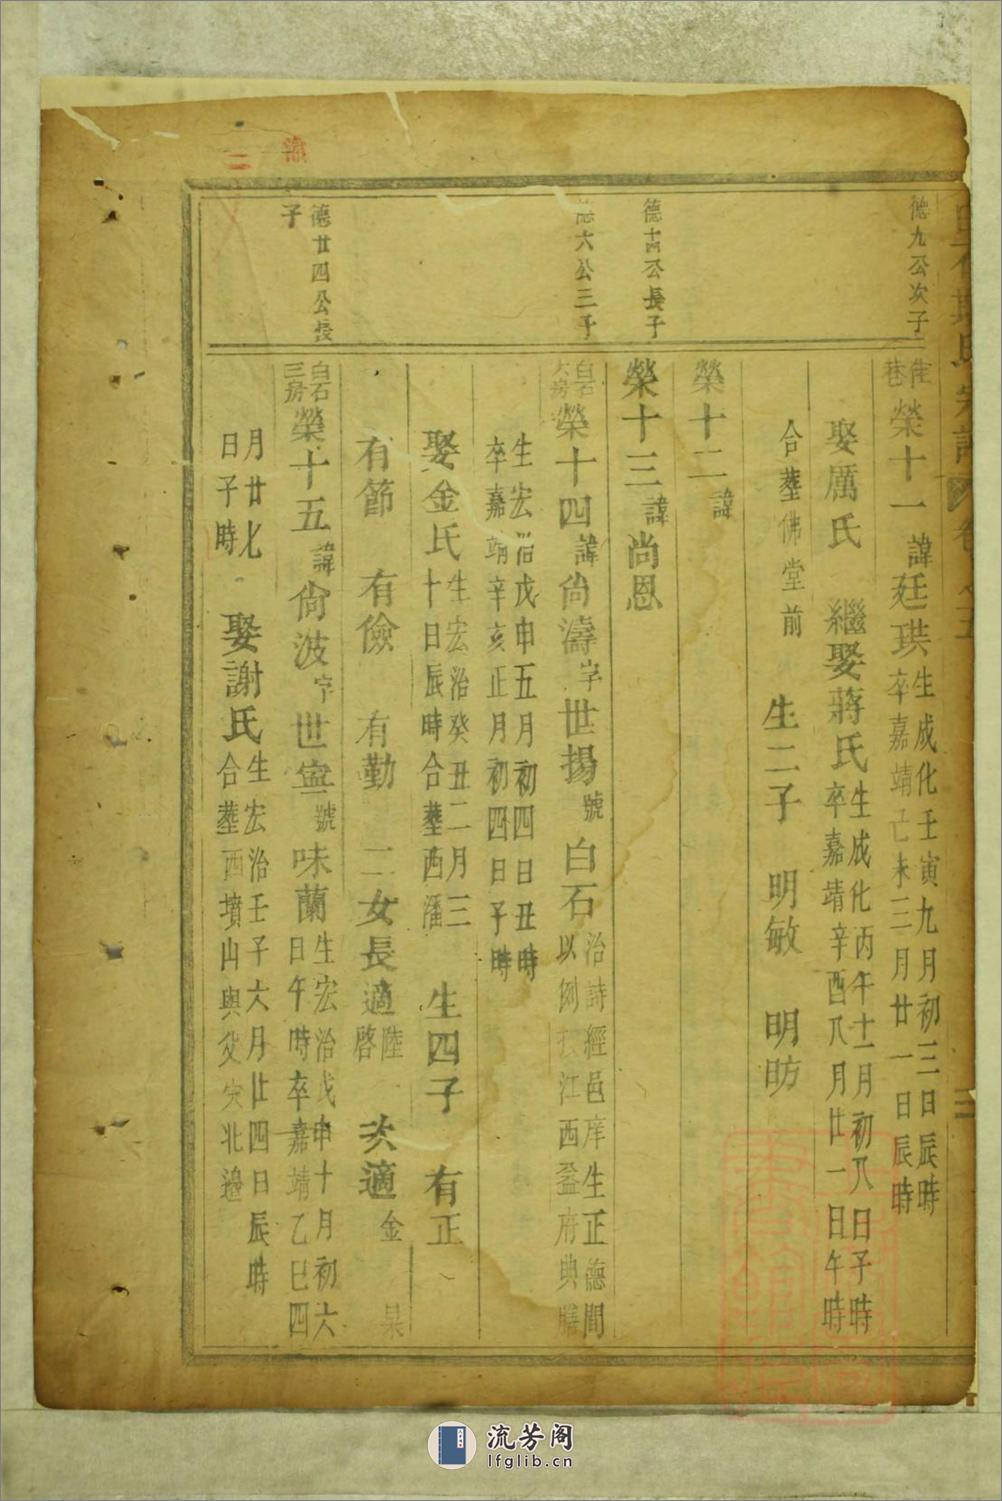 德九公次子
住巷
榮十一諱廷珙
生成化壬寅九月初三日辰時
卒嘉靖己未三月廿一日辰時
娶厲氏　繼娶蔣氏
生成化丙午十二月初八日子時
卒嘉靖辛酉八月廿一日午時
合葬佛堂前　生二子　明敏　明昉
榮十二諱
德十四公長子
榮十三諱尚恩
德六公三子
白石大房
榮十四諱尚濤字世揚號白石
治詩經邑庠生正德間
以例授江西益府典膳
生宏治戊申五月初四日丑時
卒嘉靖辛亥正月初四日子時
娶金氏
生宏治癸丑二月三
十日辰時合葬西潘
生四子　有正
有節　有儉　有勤　二女長適陸啓　次適金杲
德廿四公長子
白石三房
榮十五諱尚波字世寧號味蘭
生宏治戊申十月初六
日午時卒嘉靖乙巳四
月廿七
日子時
娶謝氏
生宏治壬子六月廿四日辰時
合葬西墳山與父穴北邊
流芳阁
lfglib.cn